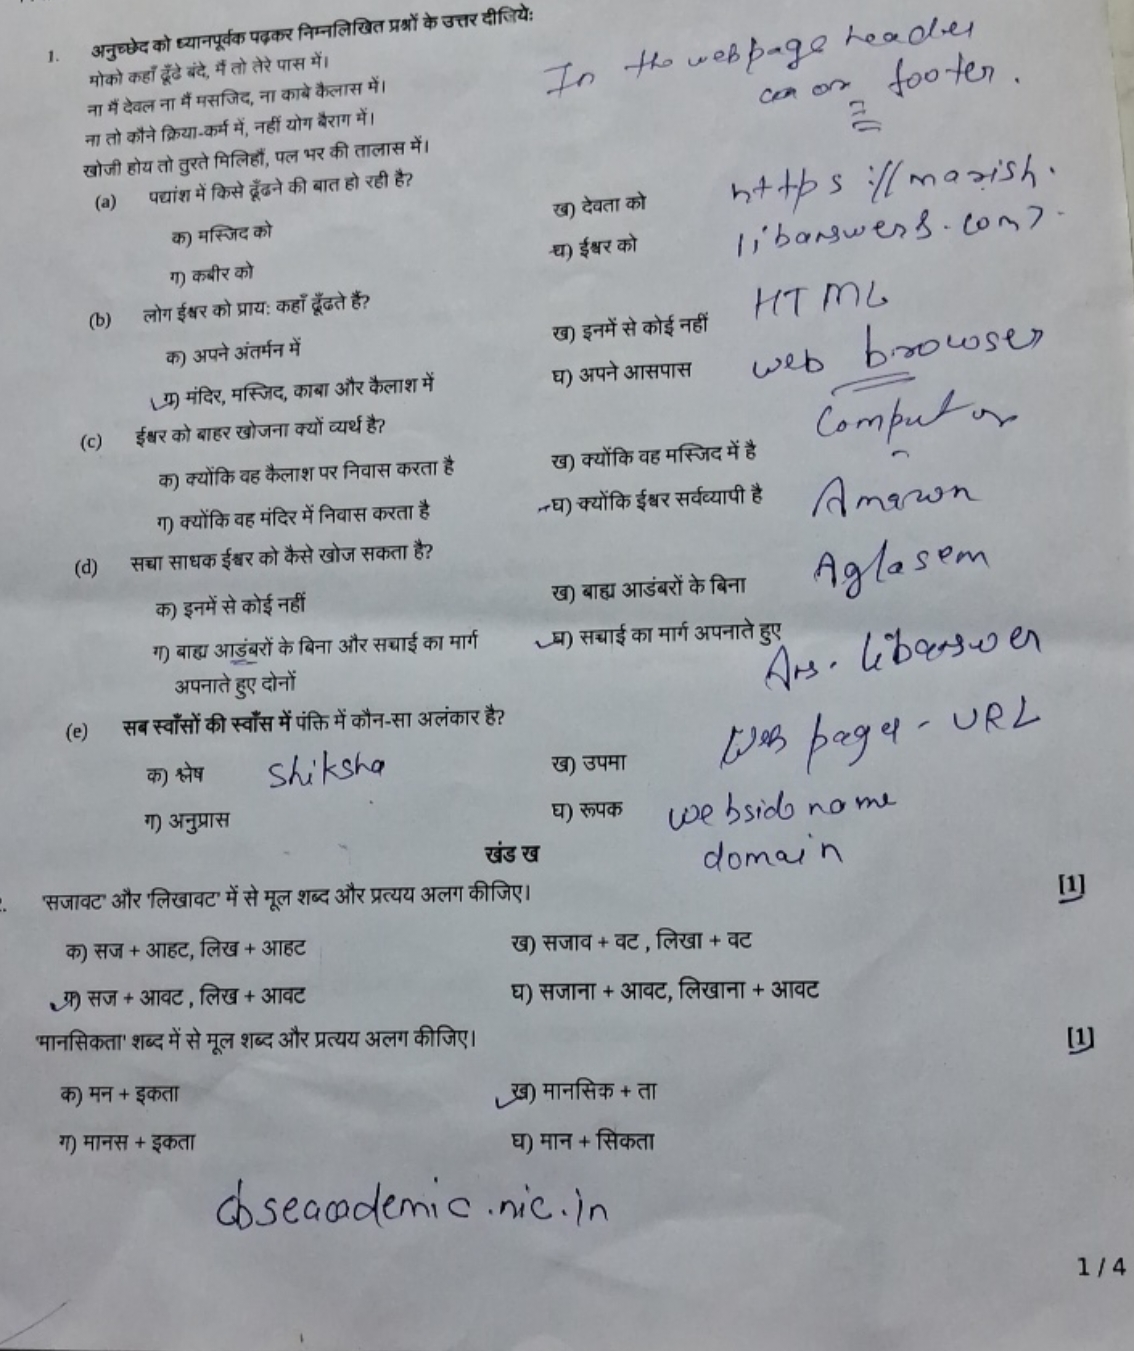 1. अनुच्छेद को ध्यानपूर्वक पढ़कर निम्नलिखित प्रश्नों के उत्तर दीजिये:
मोको कहाँ ढूँढे बंदे, मैं तो तेरे पास में।
ना मैं देवल ना मैं मसजिद, ना काबे कैलास में।
ना तो कौने क्रिया-कर्म में, नहीं योग बैराग में।
खोजी होय तो तुरते मिलिहौं, पल भर की तालास में।
In the webpage header
or footer.
(a) पद्यांश में किसे ढूँढ़ने की बात हो रही है?
क) मस्जिद को ख) देवता को
ग) कबीर को घ) ईश्वर को
https://marish.
libanswers.com7.
(b) लोग ईश्वर को प्राय: कहाँ ढूँढते हैं?
HTML
क) अपने अंतर्मन में ख) इनमें से कोई नहीं
ग) मंदिर, मस्जिद, काबा और कैलाश में घ) अपने आसपास
web browser
(c) ईश्वर को बाहर खोजना क्यों व्यर्थ है?
Computer
क) क्योंकि वह कैलाश पर निवास करता है ख) क्योंकि वह मस्जिद में है
ग) क्योंकि वह मंदिर में निवास करता है घ) क्योंकि ईश्वर सर्वव्यापी है
Amazon
(d) सच्चा साधक ईश्वर को कैसे खोज सकता है?
Aglasem
क) इनमें से कोई नहीं ख) बाह्य आडंबरों के बिना
ग) बाह्य आडंबरों के बिना और सच्चाई का मार्ग घ) सच्चाई का मार्ग अपनाते हुए
अपनाते हुए दोनों
Ans. libanswer
(e) सब स्वाँसों की स्वाँस में पंक्ति में कौन-सा अलंकार है?
Web page - URL
क) श्लेष Shiksha ख) उपमा
ग) अनुप्रास घ) रूपक
name
domain
खंड ख
'सजावट' और 'लिखावट' में से मूल शब्द और प्रत्यय अलग कीजिए। [1]
क) सज + आहट, लिख + आहट ख) सजाव + वट , लिखा + वट
ग) सज + आवट , लिख + आवट घ) सजाना + आवट, लिखाना + आवट
'मानसिकता' शब्द में से मूल शब्द और प्रत्यय अलग कीजिए। [1]
क) मन + इकता ख) मानसिक + ता
ग) मानस + इकता घ) मान + सिकता
cbseacademic.nic.in
1 / 4